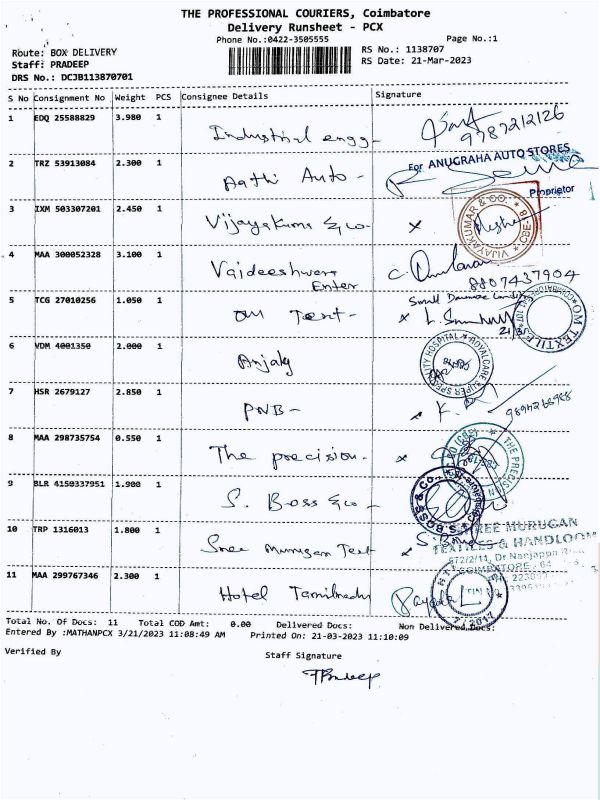 THE PROFESSIONAL COURIERS, Coimbatore
Delivery Runsheet - PCX
Phone No.:0422-3505555 Page No.:1
Route: BOX DELIVERY RS No.: 1138707
Staff: PRADEEP RS Date: 21-Mar-2023
DRS No.: DCJB113870701
S No Consignment No Weight PCS Consignee Details Signature
1 EDQ 25588829 3.980 1 Industrial engg- 9787212126
For ANUGRAHA AUTO STORES
2 TRZ 53913084 2.300 1 Aathi Auto -
Proprietor
3 IXM 503307201 2.450 1 Vijayakuma & co- x VIJAYAKUMAR & CO. * CBE-18 *
4 MAA 300052328 3.100 1 Vaideeshwara Enter
8807437904
5 TCG 27010256 1.050 1 om Text- x
21/3
OM TEXTILE
6 VDM 4001350 2.000 1 Anjaly ROYALCARE SUPER SPECIALITY HOSPITAL *
7 HSR 2679127 2.850 1 PNB - x K.
8 MAA 298735754 0.550 1 The precision- x THE PRECISION
9 BLR 4150337951 1.900 1 S. Boss & co - S. BOSS & Co.
10 TRP 1316013 1.800 1 Sree Murugan Text x
SREE MURUGAN
TEXTILES & HANDLOOM
672/2/11, Dr Nanjappa
COIMBATORE
11 MAA 299767346 2.300 1 Hotel Tamilnadu
Total No. Of Docs: 11 Total COD Amt: 0.00 Delivered Docs: Non Delivered Docs:
Entered By :MATHANPCX 3/21/2023 11:08:49 AM Printed On: 21-03-2023 11:10:09
Verified By Staff Signature
Pradeep